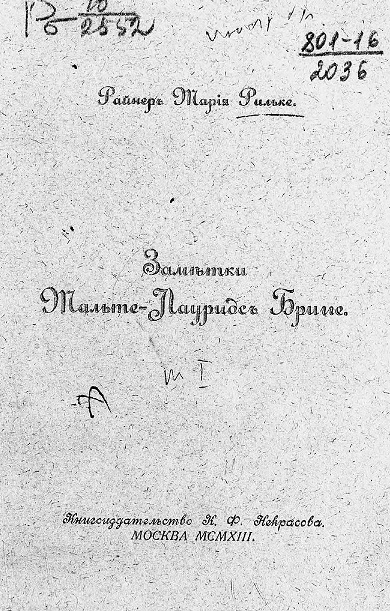 10
2552
801-16
2036
Райнеръ Марія Рильке.
Замѣтки
Мальте-Лауридсъ Бриге.
т I
Книгоиздательство К. Ф. Некрасова.
МОСКВА MCMXIII.